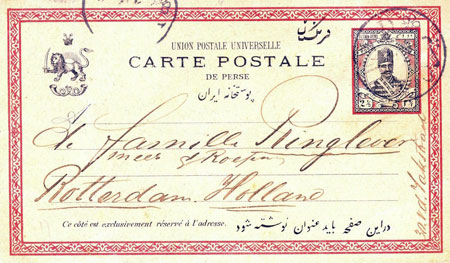 فرنگستان
UNION POSTALE UNIVERSELLE
CARTE POSTALE
DE PERSE
پوستخانه ایران
de Famille Ringlever
Rotterdam. Holland
Ce côté est exclusivement réservé à l'adresse.
دراین صفحه باید عنوان نوشته شود